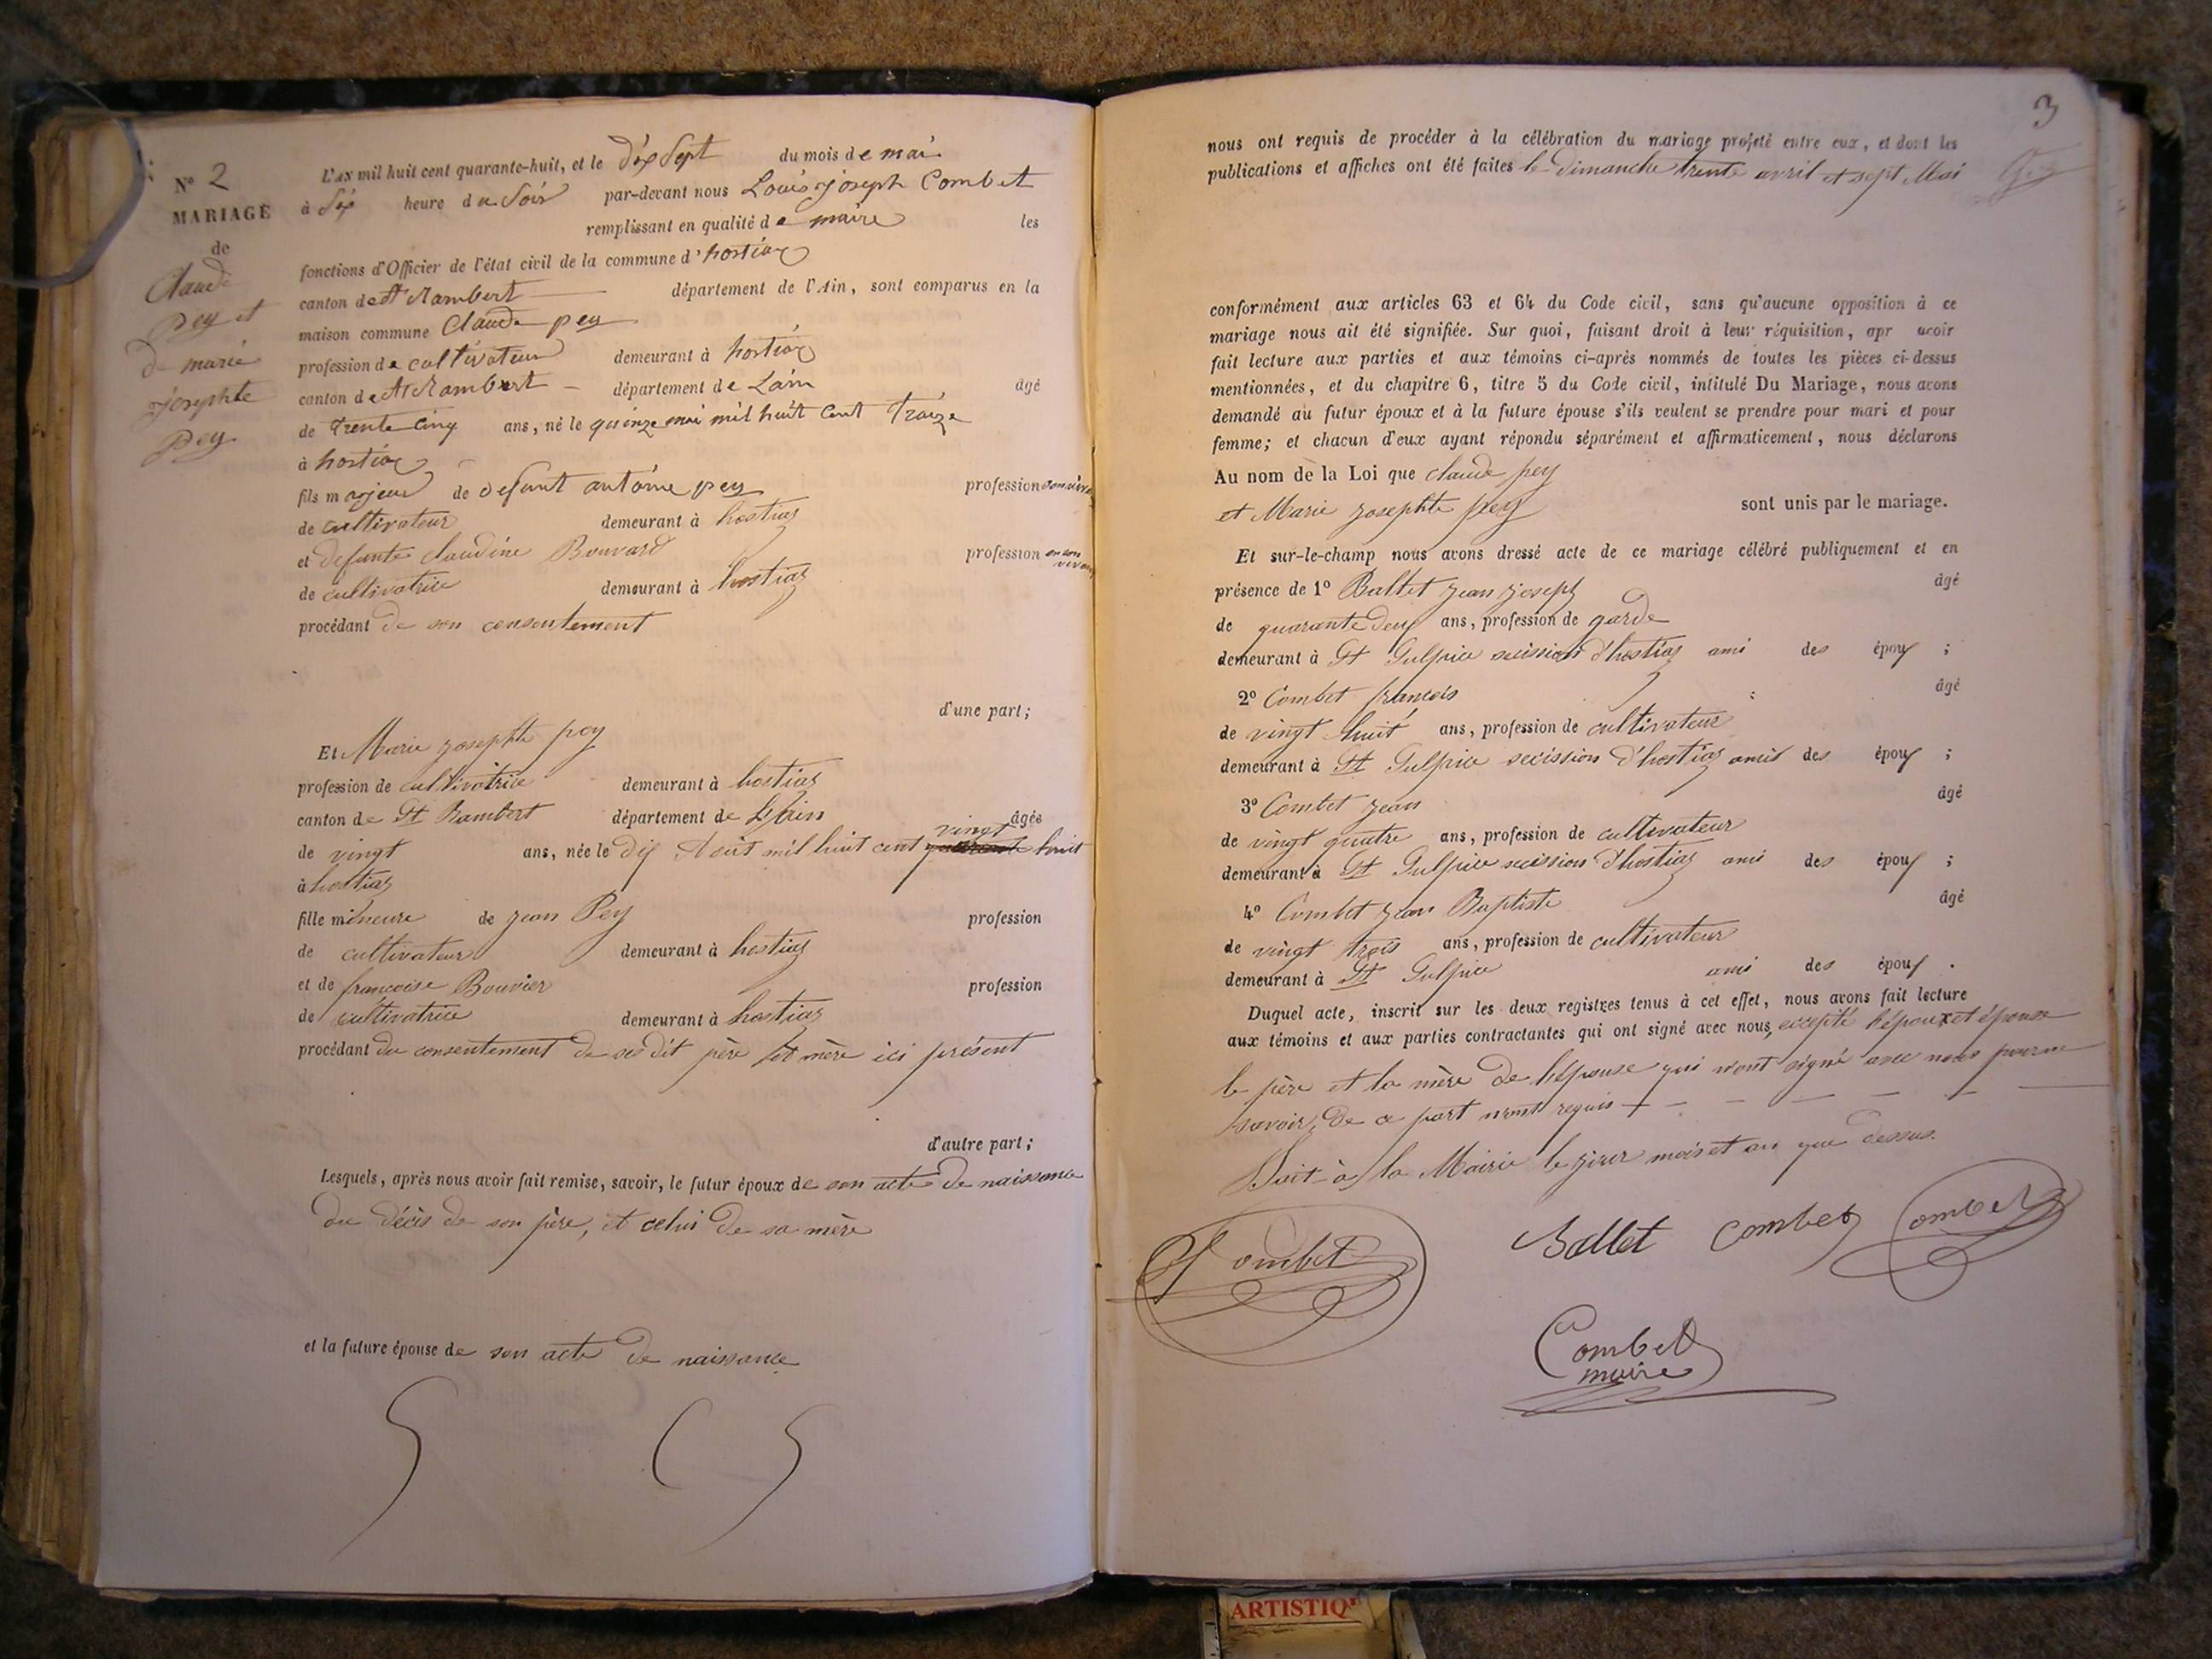 N° 2
MARIAGE
de
Claude
pey et
de marie
josephte
Pey
L'AN mil huit cent quarante-huit, et le dix Sept du mois de mai
à Six heure du Soir par-devant nous Louis joseph Combet
remplissant en qualité de maire les
fonctions d'Officier de l'état civil de la commune d'hostiaz
canton de St Rambert département de l'Ain, sont comparus en la
maison commune Claude pey
profession de cultivateur demeurant à hostiaz
canton de St Rambert département de Lain âgé
de trente cinq ans, né le quinze mai mil huit cent traize
à hostiaz
fils majeur de defunt antoine pey profession
de cultivateur demeurant à hostiaz
et defunte claudine Bouvard profession en son vivant
de cultivatrice demeurant à hostiaz
procédant de son consentement
d'une part;
Et Marie josephte pey
profession de cultivatrice demeurant à hostiaz
canton de St Rambert département de L'Ain âgée
de vingt ans, née le dix Août mil huit cent vingt huit
à hostiaz
fille mineure de jean Pey profession
de cultivateur demeurant à hostiaz
et de francoise Bouvier profession
de cultivatrice demeurant à hostiaz
procédant du consentement de ses dit père et mère ici présent
d'autre part;
Lesquels, après nous avoir fait remise, savoir, le futur époux de son acte de naissance
du décès de son père, et celui de sa mère
et la future épouse de son acte de naissance
3
nous ont requis de procéder à la célébration du mariage projeté entre eux, et dont les
publications et affiches ont été faites le Dimanche trente avril et sept Mai
conformément aux articles 63 et 64 du Code civil, sans qu'aucune opposition à ce
mariage nous ait été signifiée. Sur quoi, faisant droit à leur réquisition, apr avoir
fait lecture aux parties et aux témoins ci-après nommés de toutes les pièces ci-dessus
mentionnées, et du chapitre 6, titre 5 du Code civil, intitulé Du Mariage, nous avons
demandé au futur époux et à la future épouse s'ils veulent se prendre pour mari et pour
femme; et chacun d'eux ayant répondu séparément et affirmativement, nous déclarons
Au nom de la Loi que claude pey
et Marie josephte pey sont unis par le mariage.
Et sur-le-champ nous avons dressé acte de ce mariage célébré publiquement et en
présence de 1° Ballet jean joseph âgé
de quarante deux ans, profession de garde
demeurant à St Sulpice secission d'hostiaz ami des époux ;
2° Combet francois âgé
de vingt huit ans, profession de cultivateur
demeurant à St Sulpice secission d'hostiaz amis des époux ;
3° Combet jean âgé
de vingt quatre ans, profession de cultivateur
demeurant à St Sulpice secission d'hostiaz ami des époux ;
4° Combet jean Baptiste âgé
de vingt trois ans, profession de cultivateur
demeurant à St Sulpice ami des époux .
Duquel acte, inscrit sur les deux registres tenus à cet effet, nous avons fait lecture
aux témoins et aux parties contractantes qui ont signé avec nous, eccepté l'époux et épouse
le père et la mère de l'épouse qui n'ont signé avec nous pour ne
savoir, de ce part nront requis
Dait à la Mairie le jour mois et an que dessus.
Combet
Ballet
Combet
Combet
Combet
maire
ARTISTIQ